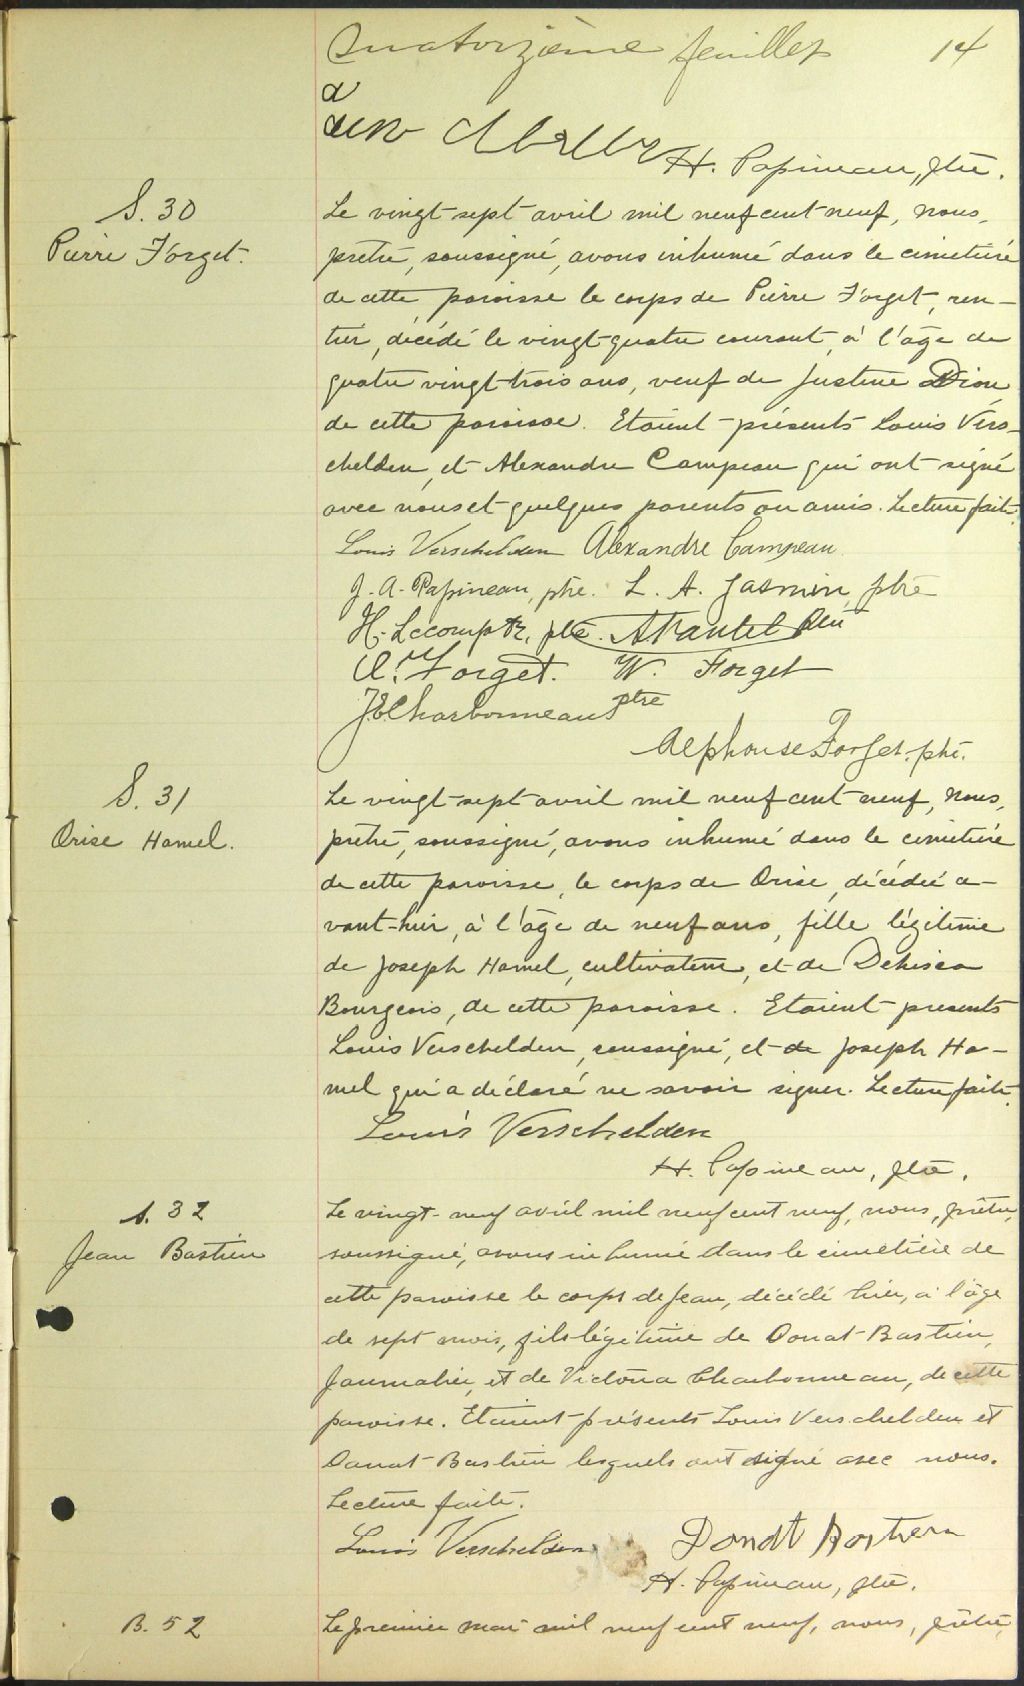 Quatorzième feuillet 14
H. Papineau, ptre.
S. 30
Pierre Forget.
Le vingt-sept avril mil neuf cent neuf, nous,
prêtre, soussigné, avons inhumé dans le cimetière
de cette paroisse le corps de Pierre Forget, ren-
tier, décédé le vingt-quatre courant, à l'âge de
quatre vingt-trois ans, veuf de Justine Dion
de cette paroisse. Etaient présents Louis Vers-
chelden, et Alexandre Campeau qui ont signé
avec nous et quelques parents ou amis. Lecture faite.
Louis Verschelden Alexandre Campeau
J. A. Papineau, ptre. L. A. Jasmin, ptre
H. Lecompte, ptre. A Nantel Ptre
A. Forget. W. Forget
J E Charbonneau ptre
Alphonse Forget, ptre.
S. 31
Orise Hamel.
Le vingt-sept avril mil neuf cent neuf, nous,
prêtre, soussigné, avons inhumé dans le cimetière
de cette paroisse, le corps de Orise, décédée a-
vant-hier, à l'âge de neuf ans, fille légitime
de Joseph Hamel, cultivateur, et de
Bourgeois, de cette paroisse. Etaient presents
Louis Verschelden, soussigné, et de Joseph Ha-
mel qui a déclaré ne savoir signer. Lecture faite.
Louis Verschelden
H. Papineau, ptre.
S. 32
Jean Bastien
Le vingt-neuf avril mil neuf cent neuf, nous, prêtre,
soussigné, avons inhumé dans le cimetière de
cette paroisse le corps de Jean, décédé hier, à l'âge
de sept mois, fils légitime de Donat Bastien,
Journalier, et de Victoria Charbonneau, de cette
paroisse. Etaient présents Louis Verschelden et
Donat Bastien lesquels ont signé avec nous.
Lecture faite.
Louis Verschelden Donat Bastien
H. Papineau, ptre.
B. 52
Le premier mai mil neuf cent neuf, nous, prêtre,